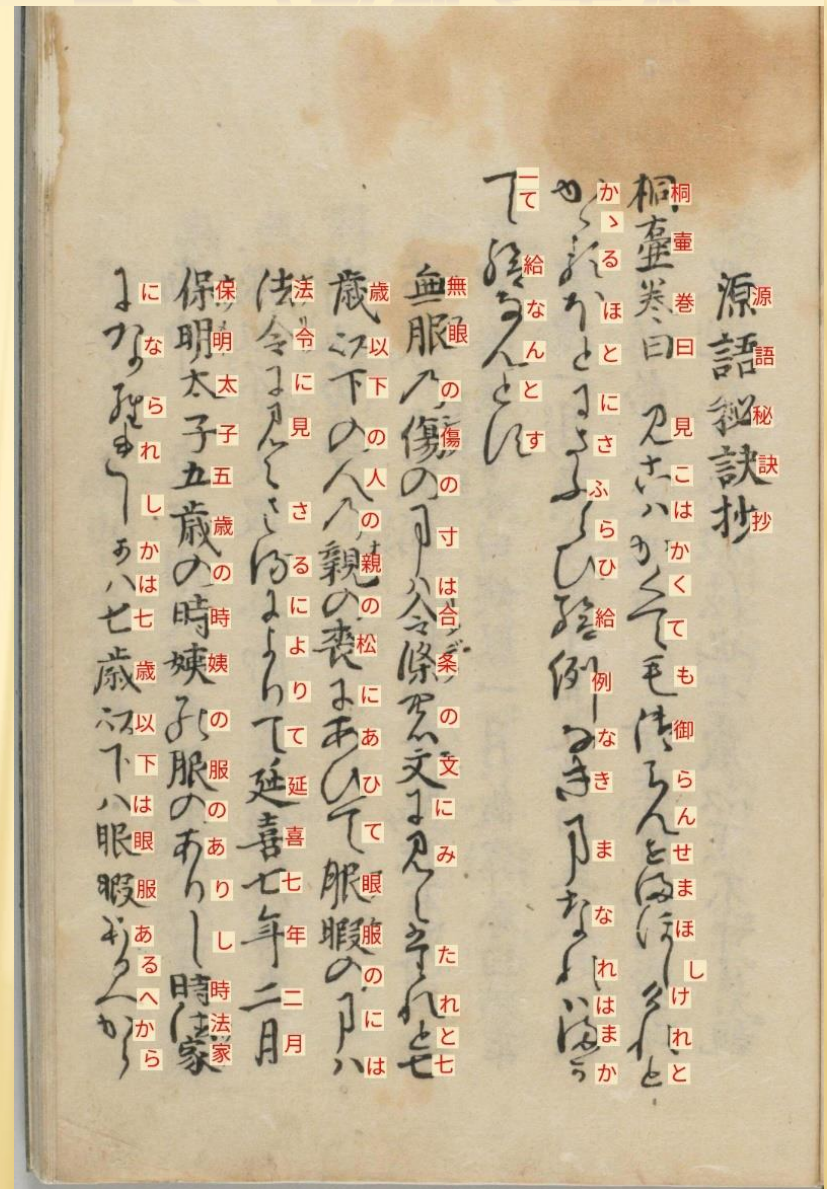 源語秘訣抄
桐壷巻曰見こはかくても御らんせまほしけれと
かゝるほとにさふらひ給例なきまなれはまか
一て給なんとす
無眼の傷の寸は合条の文にみたれと七
歳以下の人の親の松にあひて眼服のには
法令に見さるによりて延喜七年二月
保明太子五歳の時姨の服のありし時法家
になられしかは七歳以下は眼服あるへから